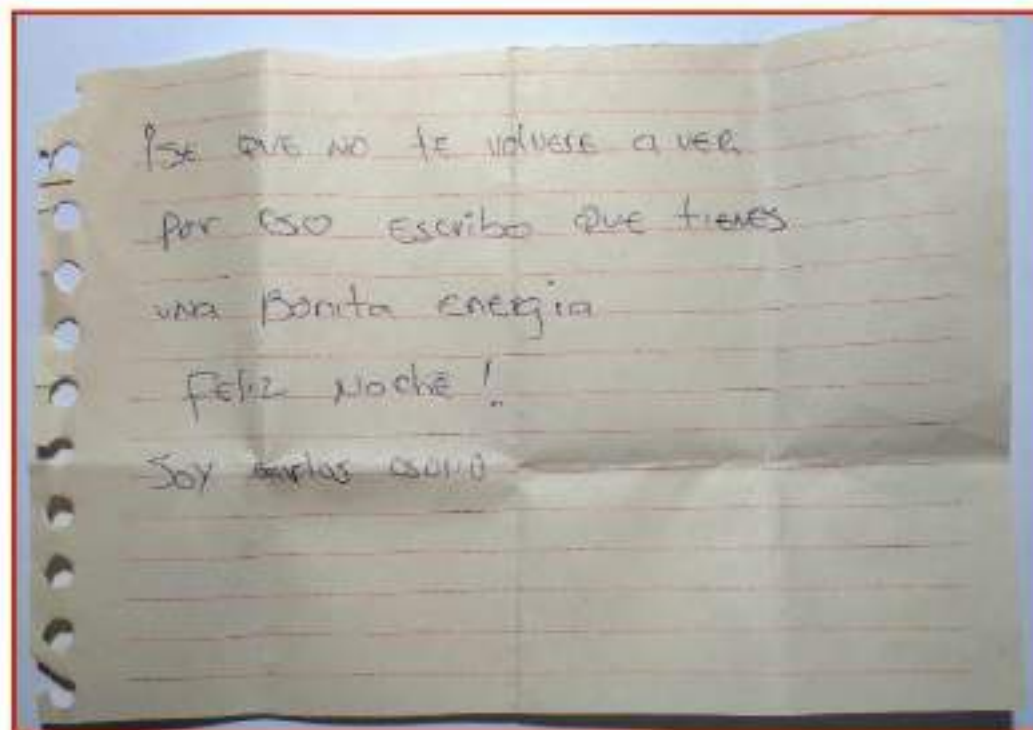 ¡SE QUE NO TE VOLVERE A VER
Por ESO Escribo QUE tIENES
UNA Bonita Energia
FELIZ NOCHE!
Soy